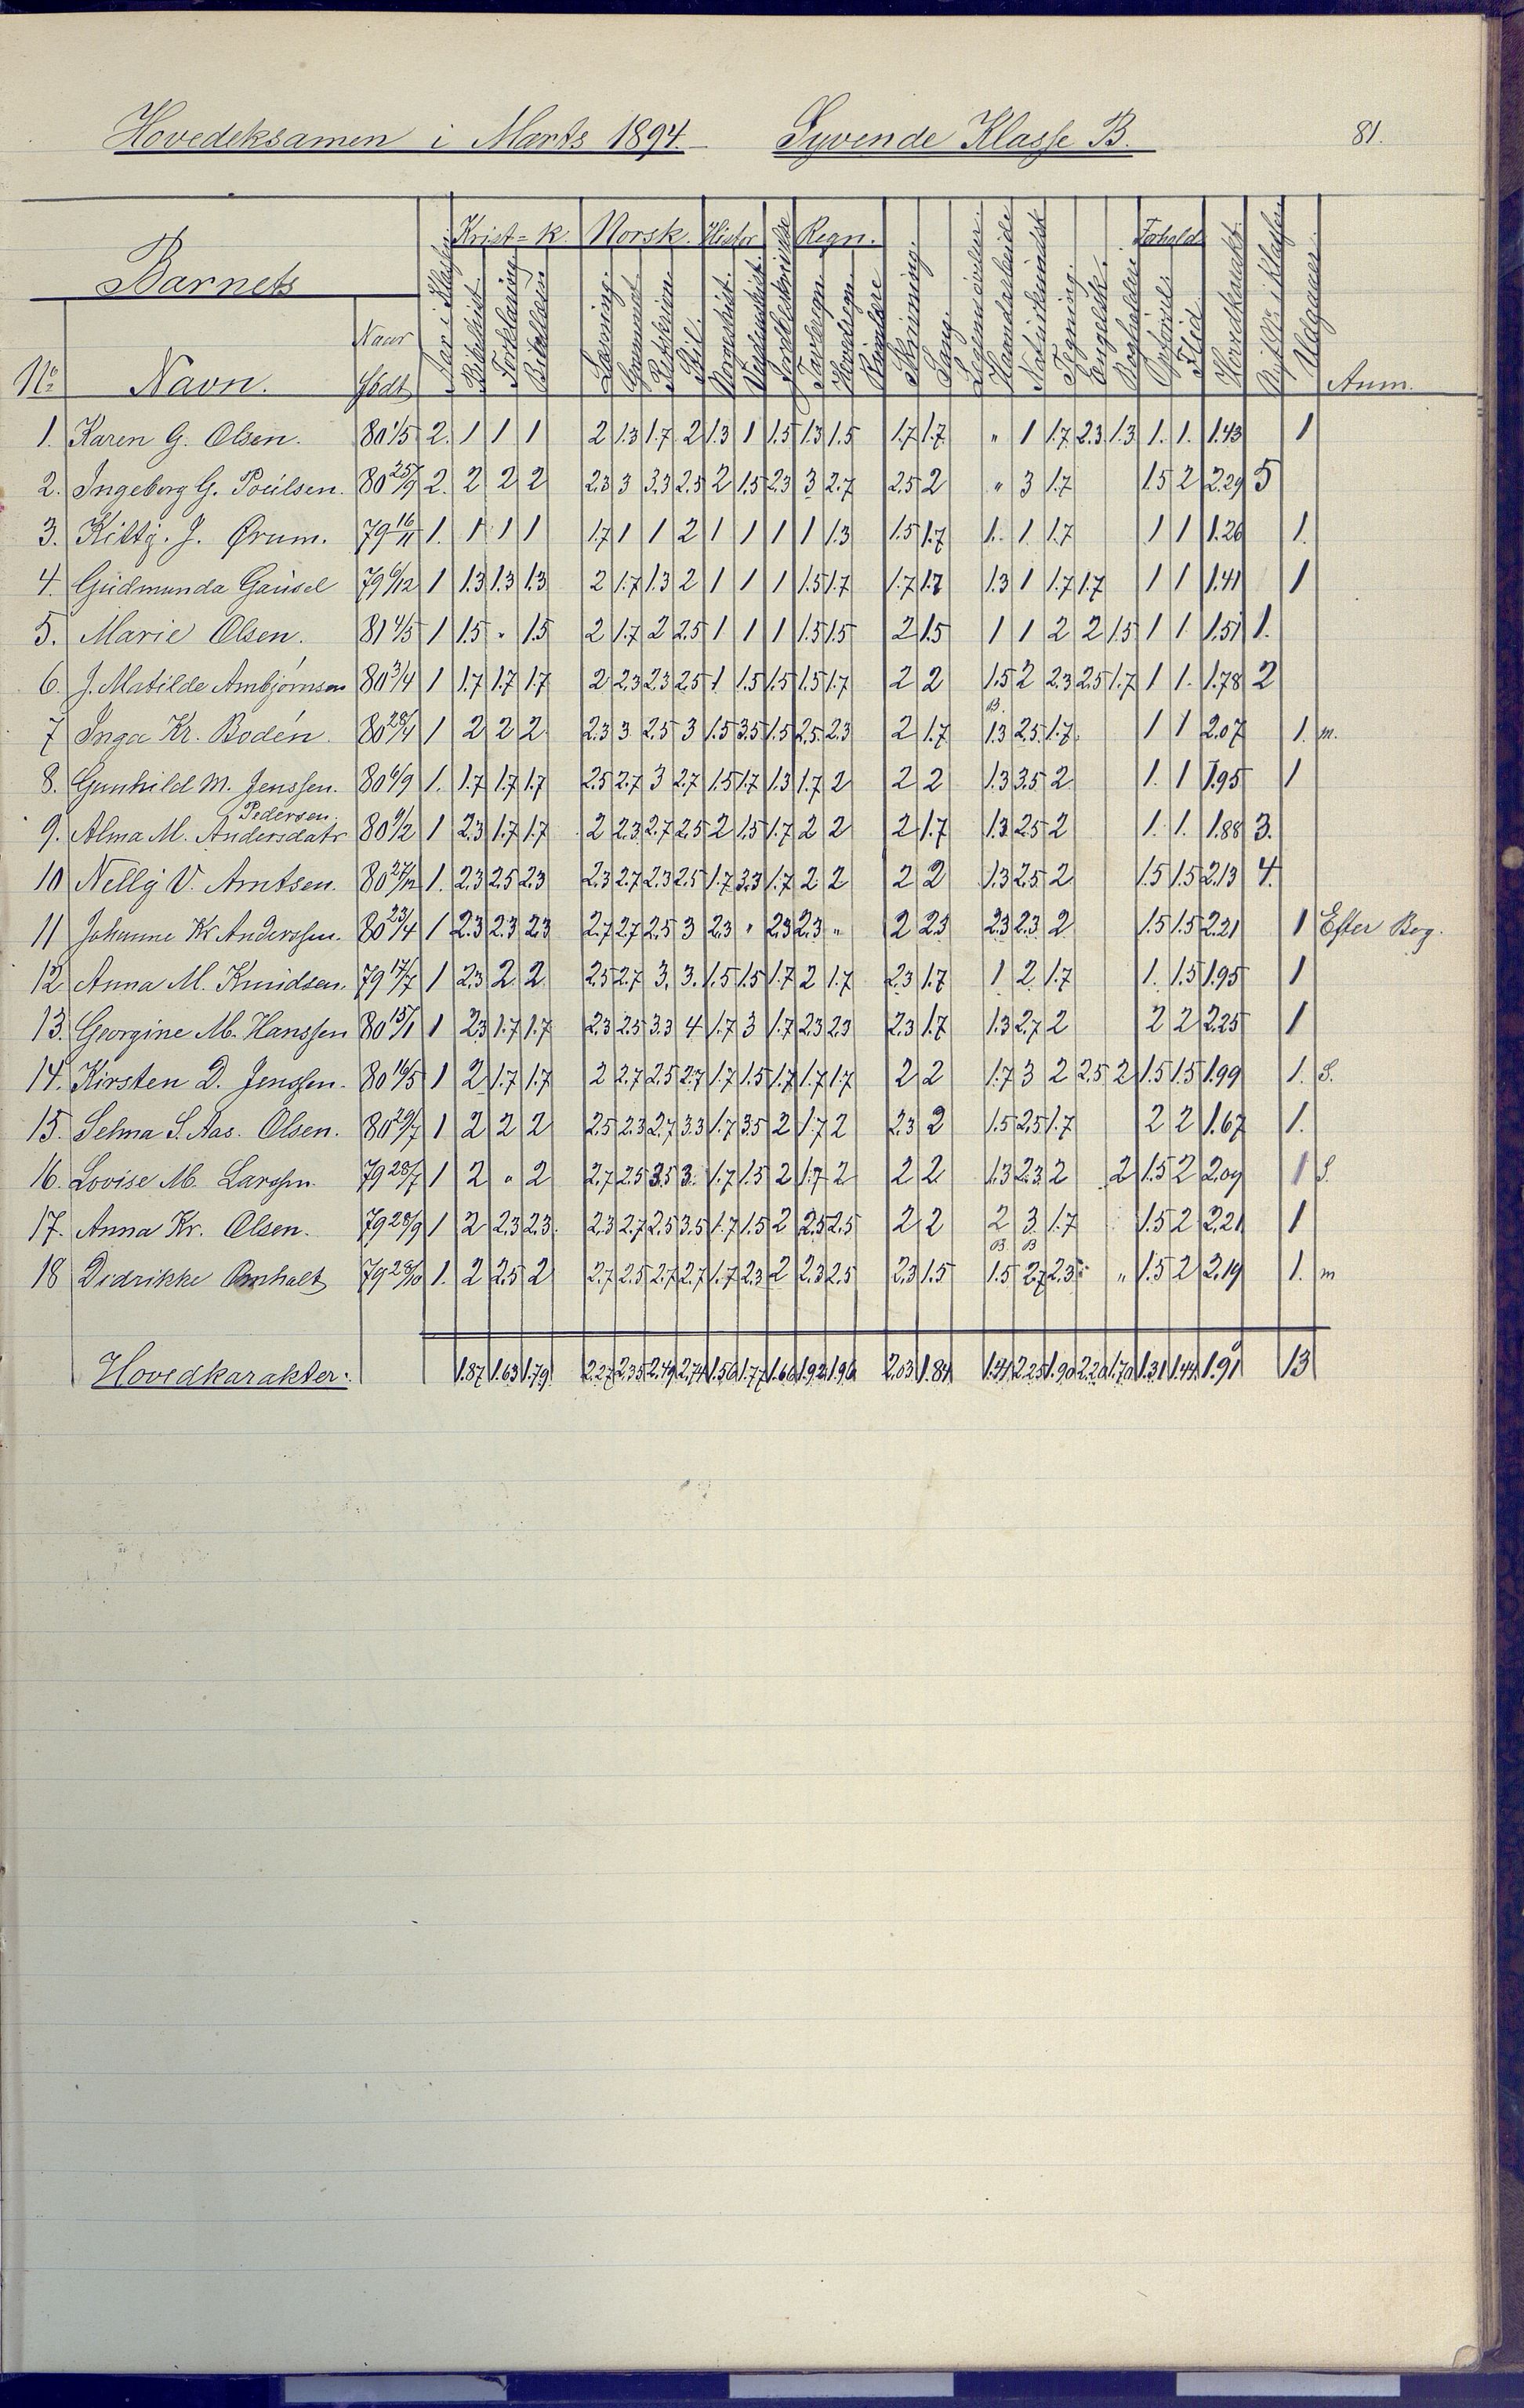 Hovedeksamen i Marts 1894. Syvende Klasse B. 81.
Krist-k. Norsk. Histor Regn. Forhold
Barnets
No Navn. Naar født Aar i Klassen Bibelhist. Forklaring Bibellæsn Læsning. Grammat. Retskrivn Stil. Norgeshist. Verdenshist. Jordbeskrivelse Tavleregn. Hovedregn. Skrivning. Sang. Legemsøvelser. Haandarbeide Naturkundsk Tegning. Engelsk. Bogholderi Opførsel. Flid. Hovedkarakt. Nyt No. i Klassen Udgaaer. Anm.
1. Karen G. Olsen. 80 1/5 2. 1 1 1 2 1.3 1.7 2 1.3 1 1.5 1.3 1.5 1.7 1.7 " 1 1.7 2.3 1.3 1. 1. 1.43 1
2. Ingeborg G. Poulsen. 80 25/9 2. 2 2 2 2.3 3 3.3 2.5 2 1.5 2.3 3 2.7 2.5 2 " 3 1.7 1.5 2 2.29 5
3. Kitty. J. Ørum. 79 16/11 1. 1 1 1 1.7 1 1 2 1 1 1 1 1.3 1.5 1.7 1. 1 1.7 1 1 1.26 1.
4. Gudmunda Gausel 79 6/12 1 1.3 1.3 1.3 2 1.7 1.3 2 1 1 1 1.5 1.7 1.7 1.7 1.3 1 1.7 1.7 1 1 1.41 1
5. Marie Olsen. 81 4/5 1 1.5 " 1.5 2 1.7 2 2.5 1 1 1 1.5 1.5 2 1.5 1 1 2 2 1.5 1 1 1.51 1.
6. J. Matilde Ambjørnsen 80 3/4 1 1.7 1.7 1.7 2 2.3 2.3 2.5 1 1.5 1.5 1.5 1.7 2 2 1.5 2 2.3 2.5 1.7 1 1. 1.78 2
B.
7 Inga Kr. Bodén. 80 28/4 1 2 2 2 2.3 3 2.5 3 1.5 3.5 1.5 2.5 2.3 2 1.7 1.3 2.5 1.7. 1 1 2.07 1. m.
8. Gunhild M. Jenssen. 80 6/9 1. 1.7 1.7 1.7 2.5 2.7 3 2.7 1.5 1.7 1.3 1.7 2 2 2 1.3 3.5 2 1. 1 1.95 1
Pedersen.
9. Alma M. Andersdatr 80 9/2 1 2.3 1.7 1.7 2 2.3 2.7 2.5 2 1.5 1.7 2 2 2 1.7 1.3 2.5 2 1. 1. 1.88 3.
10 Nelly V. Arntsen. 80 27/12 1. 2.3 2.5 2.3 2.3 2.7 2.3 2.5 1.7 3.3 1.7 2 2 2 2 1.3 2.5 2 1.5 1.5 2.13 4.
11 Johanne Kr Anderssen. 80 23/4 1 2.3 2.3 2.3 2.7 2.7 2.5 3 2.3 " 2.3 2.3 " 2 2.3 2.3 2.3 2 1.5 1.5 2.21 1 Efter Beg.
12 Anna M. Knudsen. 79 17/7 1 2.3 2 2 2.5 2.7 3. 3. 1.5 1.5 1.7 2 1.7 2.3 1.7 1 2 1.7 1. 1.5 1.95 1
13. Georgine M. Hanssen 80 15/1 1 2.3 1.7 1.7 2.3 2.5 3.3 4 1.7 3 1.7 2.3 2.3 2.3 1.7 1.3 2.7 2 2 2 2.25 1
14. Kirsten D. Jenssen. 80 16/5 1 2 1.7 1.7 2 2.7 2.5 2.7 1.7 1.5 1.7 1.7 1.7 2 2 1.7 3 2 2.5 2 1.5 1.5 1.99 1. S.
15. Selma S. Aas. Olsen. 80 29/7 1 2 2 2 2.5 2.3 2.7 3.3 1.7 3.5 2 1.7 2 2.3 2 1.5 2.5 1.7 2 2 1.67 1.
16. Lovise M. Larssen. 79 28/7 1 2 " 2 2.7 2.5 3.5 3. 1.7 1.5 2 1.7 2 2 2 1.3 2.3 2 2 1.5 2 2.09 1 S.
17. Anna Kr. Olsen. 79 28/9 1 2 2.3 2.3. 2.3 2.7 2.5 3.5 1.7 1.5 2 2.5 2.5 2 2 2 3 1.7 1.5 2 2.21 1
B. B
18 Didrikke Omholt 79 28/10 1. 2 2.5 2 2.7 2.5 2.7 2.7 1.7 2.3 2 2.3 2.5 2.3 1.5 1.5 2.7 2.3 " " 1.5 2 2.19 1. m
Hovedkarakter: 1.87 1.63 1.79 2.27 2.35 2.49 2.74 1.56 1.77 1.66 1.92 1.96 2.03 1.84 1.41 2.25 1.90 2.20 1.70 1.31 1.44 1.91 13